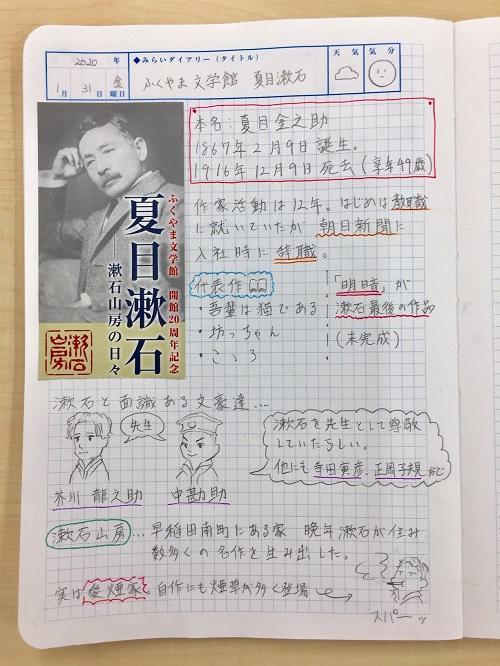 2020 年
◆みらいダイアリー(タイトル)
天気
気分
1月 31日 金曜日
ふくやま文学館 夏目漱石
ふくやま文学館 開館20周年記念
夏目漱石
漱石山房の日々
漱石山房
本名:夏目金之助
1867年2月9日誕生。
1916年12月9日死去(享年49歳)
作家活動は12年。はじめは教職
に就いていたが朝日新聞に
入社時に辞職。
代表作
・吾輩は猫である
・坊っちゃん
・こゝろ
「明暗」が
漱石最後の作品
(未完成)
漱石と面識ある文豪達…
先生
芥川 龍之助
中勘助
漱石を先生として尊敬
していたらしい。
他にも寺田寅彦、正岡子規など
漱石山房…早稲田南町にある家 晩年漱石が住み
数多くの名作を生み出した。
実は愛煙家。自作にも煙草が多く登場
スパーッ